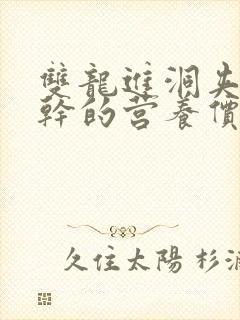 雙龍進洞夹
幹的营养價
久住太陽 杉浦